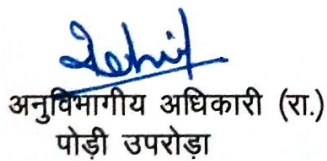 अनुविभागीय अधिकारी (रा.)
पोड़ी उपरोड़ा